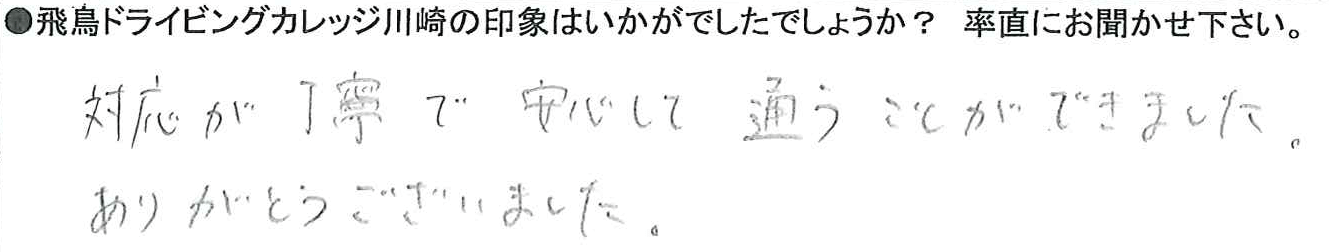 ●飛鳥ドライビングカレッジ川崎の印象はいかがでしたでしょうか？ 率直にお聞かせ下さい。
対応が丁寧で安心して通うことができました。
ありがとうございました。